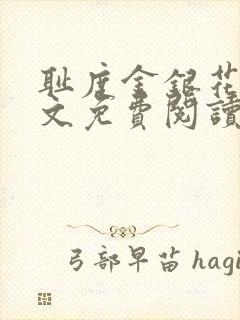 耻度金银花
文免費閱讀
弓部早苗 hagi